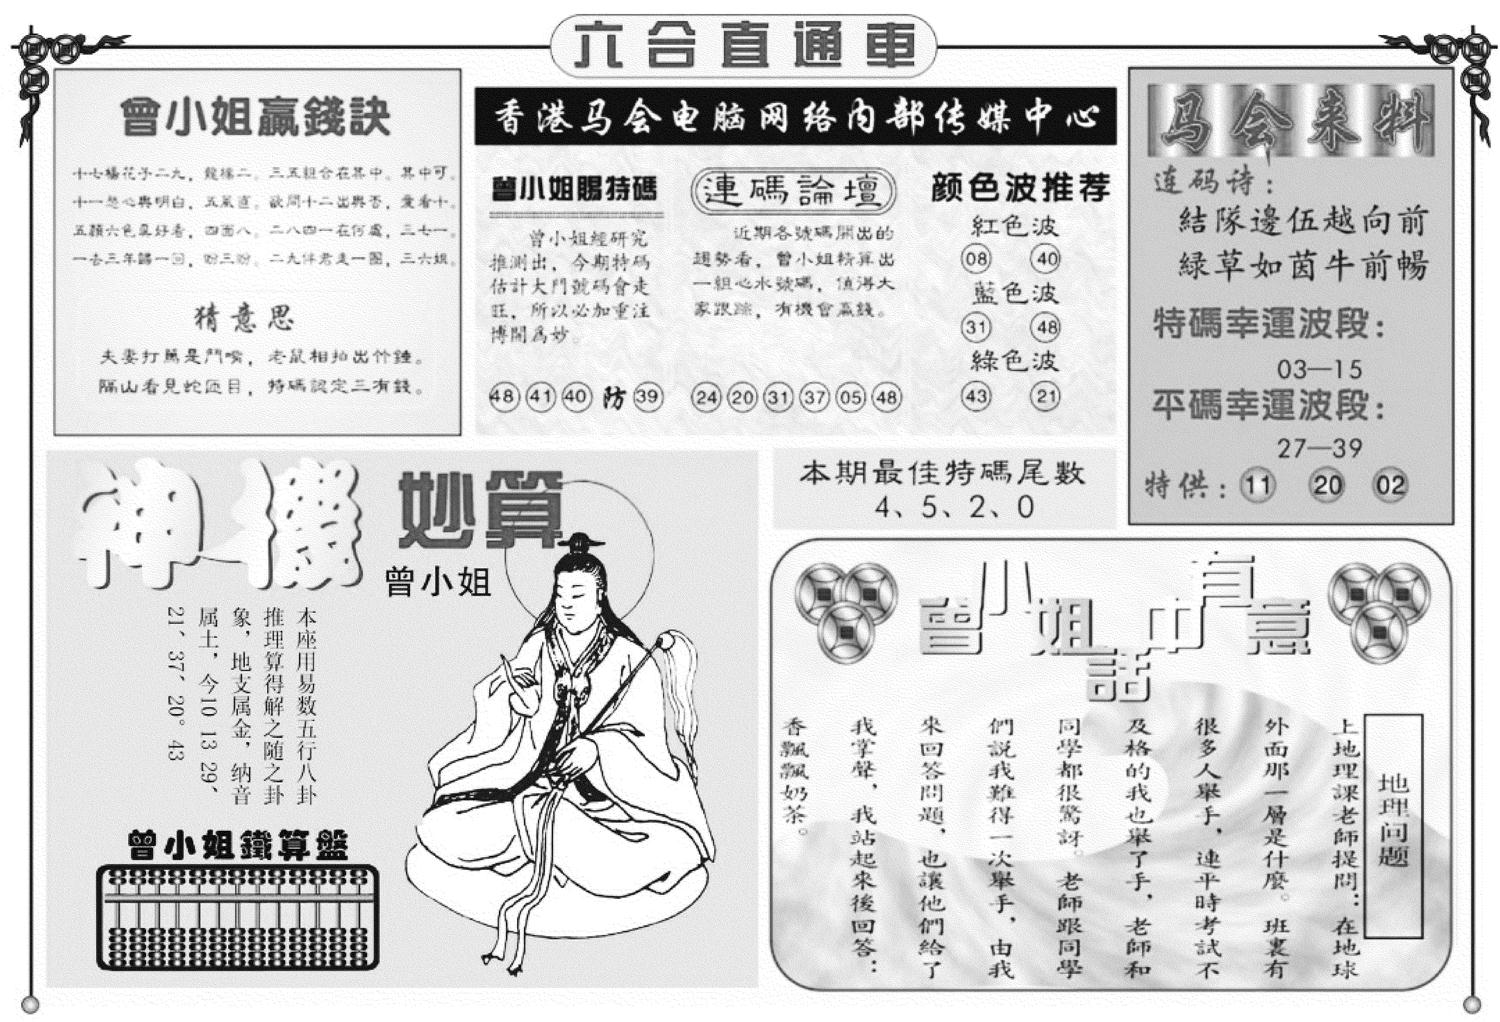 六合直通車
曾小姐贏錢訣
十七楊花子二九，龍樣二。三五組合在其中，其中可。
十一想心與明白，五氣直。欲問十二出與否，愛看十。
五顏六色真好看，四面八。二八四一在何處，三七一。
一去三年歸一回，盼三盼。二九伴君走一圈，三六姐。
猜意思
夫妻打罵是鬥嘴，老鼠相拍出竹錘。
隔山看見蛇匹目，特碼認定三有錢。
香港马会电脑网络内部传媒中心
曾小姐賜特碼
曾小姐經研究
推測出，今期特碼
估計大門號碼會走
旺，所以必加重注
博開爲妙。
48 41 40 防 39
連碼論壇
近期各號碼開出的
趨勢看，曾小姐精算出
一組心水號碼，值得大
家跟踪，有機會贏錢。
24 20 31 37 05 48
颜色波推荐
紅色波
08 40
藍色波
31 48
綠色波
43 21
马会来料
连码诗：
結隊邊伍越向前
緑草如茵牛前暢
特碼幸運波段：
03—15
平碼幸運波段：
27—39
特供：11 20 02
本期最佳特碼尾數
4、5、2、0
神機妙算
曾小姐
本座用易数五行八卦
推理算得解之随之卦
象，地支属金，纳音
属土，今10 13 29、
21、37、20。43
曾小姐鐵算盤
曾小姐話中有意
地理问题
上地理課老師提問：在地球
外面那一層是什麼。班裏有
很多人舉手，連平時考試不
及格的我也舉了手，老師和
同學都很驚訝。老師跟同學
們説我難得一次舉手，由我
來回答問題，也讓他們給了
我掌聲，我站起來後回答：
香飄飄奶茶。